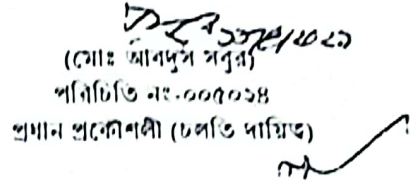 (মোঃ আবদুস সবুর)
পরিচিতি নং-০০৫০২৪
প্রধান প্রকৌশলী (চলতি দায়িত্ব)